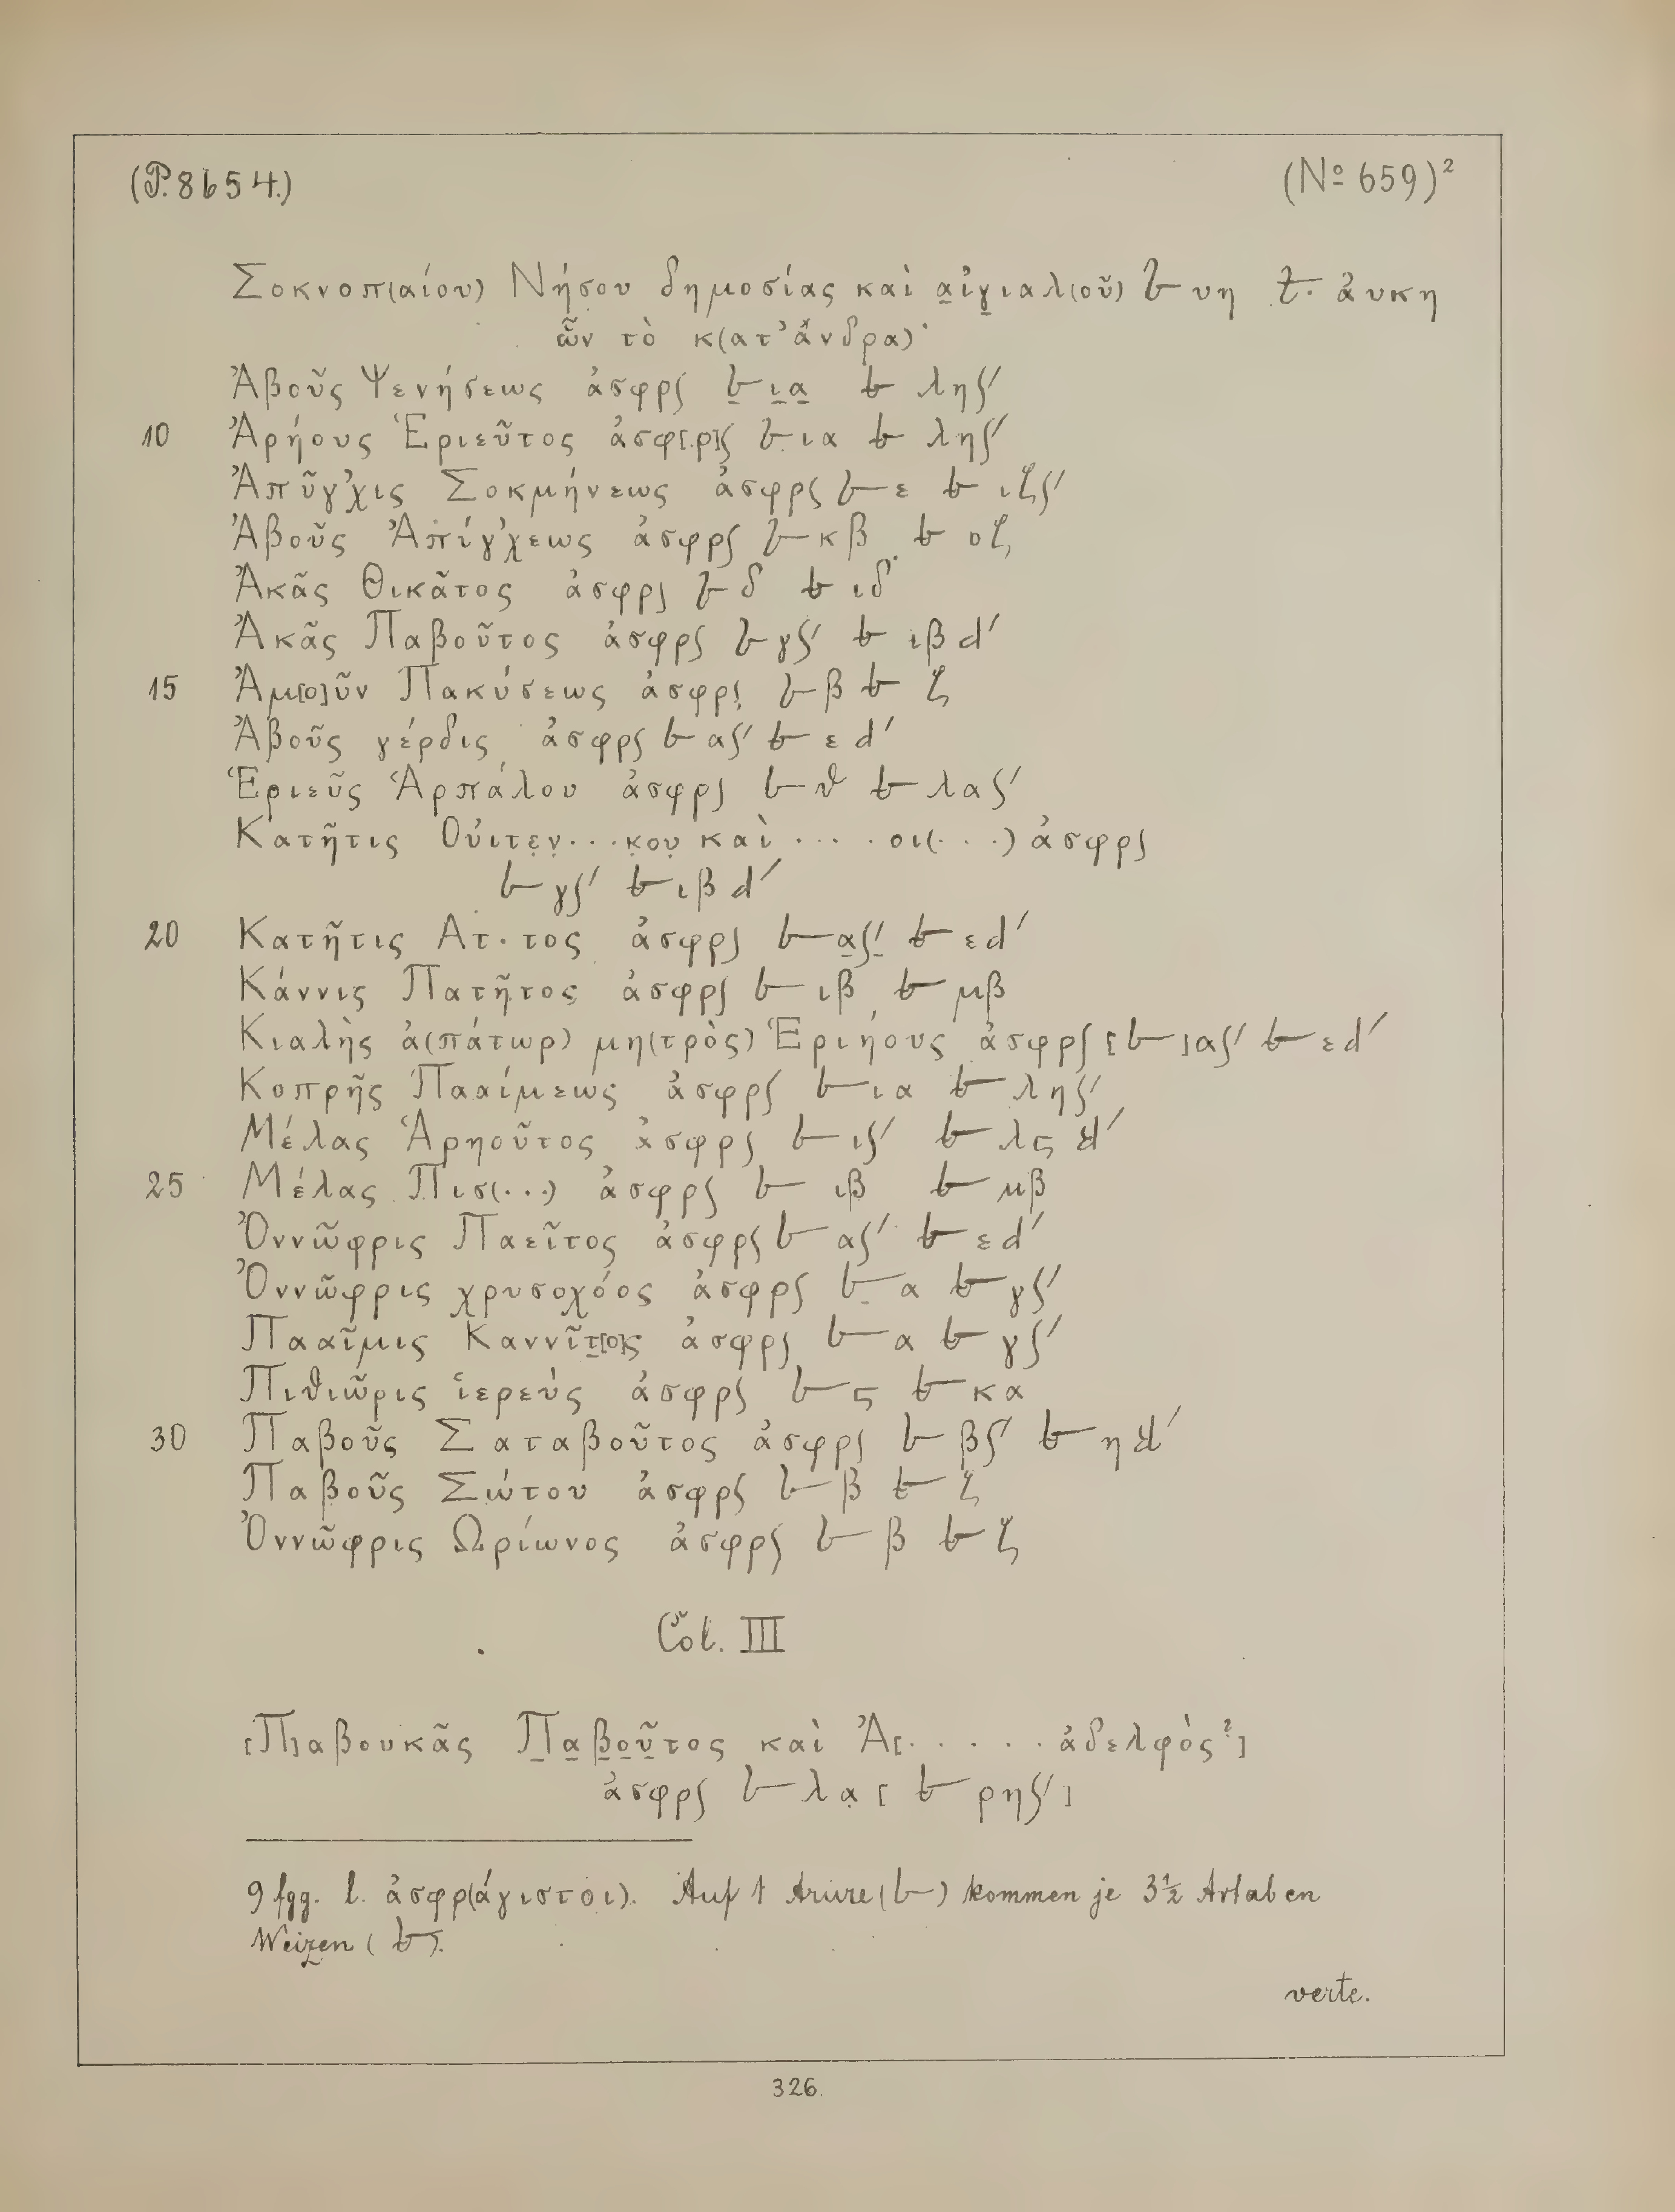 (P. 8654.) (No 659)²
Σοκνοπ(αίου) Νήσου δημοσίας καὶ α̣ἰγ̣ιαλ(οῦ) 𐅵 υη ... ἀυκη
ὧν τὸ κ(ατ' ἄνδρα)·
Ἀβοῦς Ψενήσεως ἀσφρς ι̣α̣ ληϛ´
10 Ἀρήους Ἑριεῦτος ἀσφ[ρ]ς ια ληϛ´
Ἀπῦγ'χις Σοκμήνεως ἀσφρς ε ιζϛ´
Ἀβοῦς Ἀπύγ'χεως ἀσφρς κβ οζ
Ἀκᾶς Θικᾶτος ἀσφρς δ ιδ
Ἀκᾶς Παβοῦτος ἀσφρς γϛ´ ιβ d´
15 Ἀμ[ο]ῦν Πακύσεως ἀσφρς β ζ
Ἀβοῦς γέρδις ἀσφρς αϛ´ ε d´
Ἑριεῦς Ἁρπάλου ἀσφρς θ λαϛ´
Κατῆτις Οὐιτε̣ν̣...κ̣ου̣ καὶ ....οι(...) ἀσφρς
γϛ´ ιβ d´
20 Κατῆτις Ατ.τος ἀσφρς α̣ϛ̣´ ε d´
Κάννις Πατῆτος ἀσφρς ιβ μβ
Κιαλὴς ἀ(πάτωρ) μη(τρὸς) Ἑριήους ἀσφρς [ ]αϛ´ ε d´
Κοπρῆς Πααίμεως ἀσφρς ια ληϛ´
Μέλας Ἁρηοῦτος ἀσφρς ιϛ´ λς d´
25 Μέλας Πισ(...) ἀσφρς ιβ μβ
Ὀννῶφρις Παεῖτος ἀσφρς αϛ´ ε d´
Ὀννῶφρις χρυσοχόος ἀσφρς α γϛ´
Πααῖμις Καννῖτ̣[ο]ς ἀσφρς α γϛ´
Πιθιῶρις ἱερεὺς ἀσφρς ς κα
30 Παβοῦς Σαταβοῦτος ἀσφρς βϛ´ η d´
Παβοῦς Σώτου ἀσφρς β ζ
Ὀννῶφρις Ωρίωνος ἀσφρς β ζ
Col. III
[Π]αβουκᾶς Π̣α̣β̣ο̣ῦ̣τος καὶ Ἀ[.....ἀδελφὸς?]
ἀσφρς λα̣ [ ρηϛ´]
9 fgg. l. ἀσφρ(άγιστοι). Auf 1 Arure ( ) kommen je 3½ Artaben
Weizen ( ).
verte.
326.